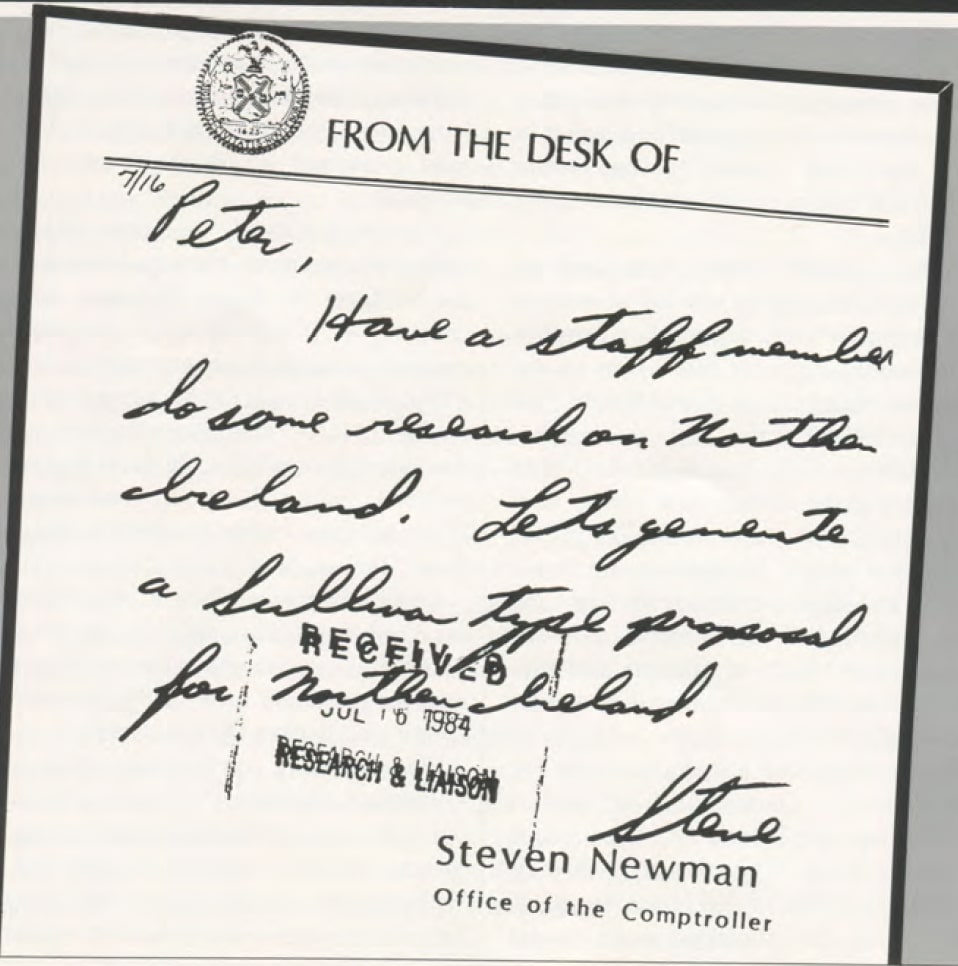 FROM THE DESK OF
7/16
Peter,
Have a staff member
do some research on Northern
Ireland. Lets generate
a Sullivan type proposal
for Northern Ireland.
RECEIVED
JUL 16 1984
RESEARCH & LIAISON
RESEARCH & LIAISON
Steve
Steven Newman
Office of the Comptroller